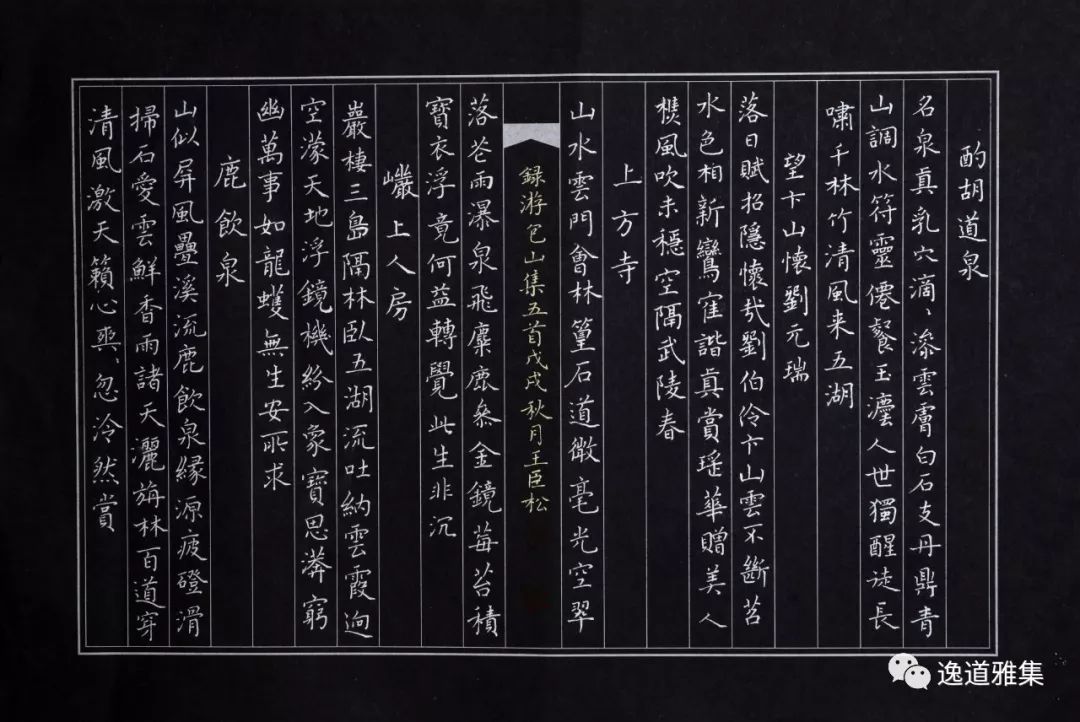 酌胡道泉
名泉真乳穴滴、滲雲膚白石支丹鼎青
山調水符靈僊餐玉瀣人世獨醒徒長
嘯千林竹清風来五湖
望卞山懷劉元瑞
落日賦招隱懷哉劉伯伶卞山雲不斷苕
水色相新鸞寉諧真賞瑤華贈美人
樵風吹未穩空隔武陵春
上方寺
山水雲門會林篁石道微毫光空翠
録游包山集五首戊戌秋月王臣松
落花雨瀑泉飛麋鹿叅金鏡莓苔積
寶衣浮竟何益轉覺此生非沉
巗上人房
巖棲三島隔林臥五湖流吐納雲霞逈
空濛天地浮鏡機紛入象寶思漭窮
幽萬事如龍蠖無生安所求
鹿飲泉
山似屏風疊溪流鹿飲泉緣源疲磴滑
掃石愛雲鮮香雨諸天灑旃林百道穿
清風激天籟心爽、忽泠然賞
逸道雅集